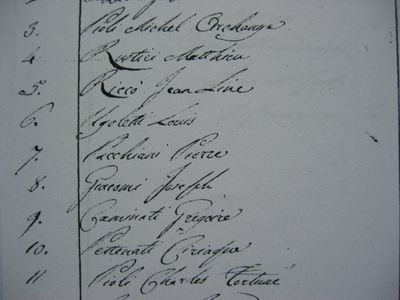 3. Pioli Michel Archange
4. Rustici Matthieu
5. Riccò Jean Line
6. Ugoletti Louis
7. Pacchiani Pierre
8. Giacomi Joseph
9. Caminati Grégoire
10. Pettenati Ciriaque
11 Pioli Charles Fortuné